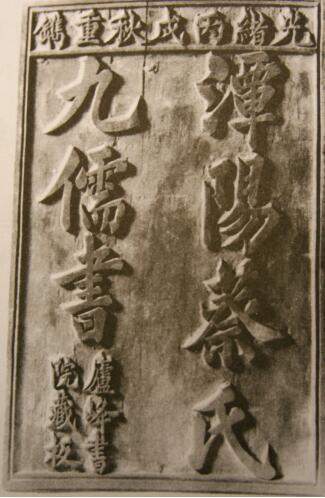 光緒丙戌秋重鐫
潭陽蔡氏
九儒書
廬峰書
院藏板